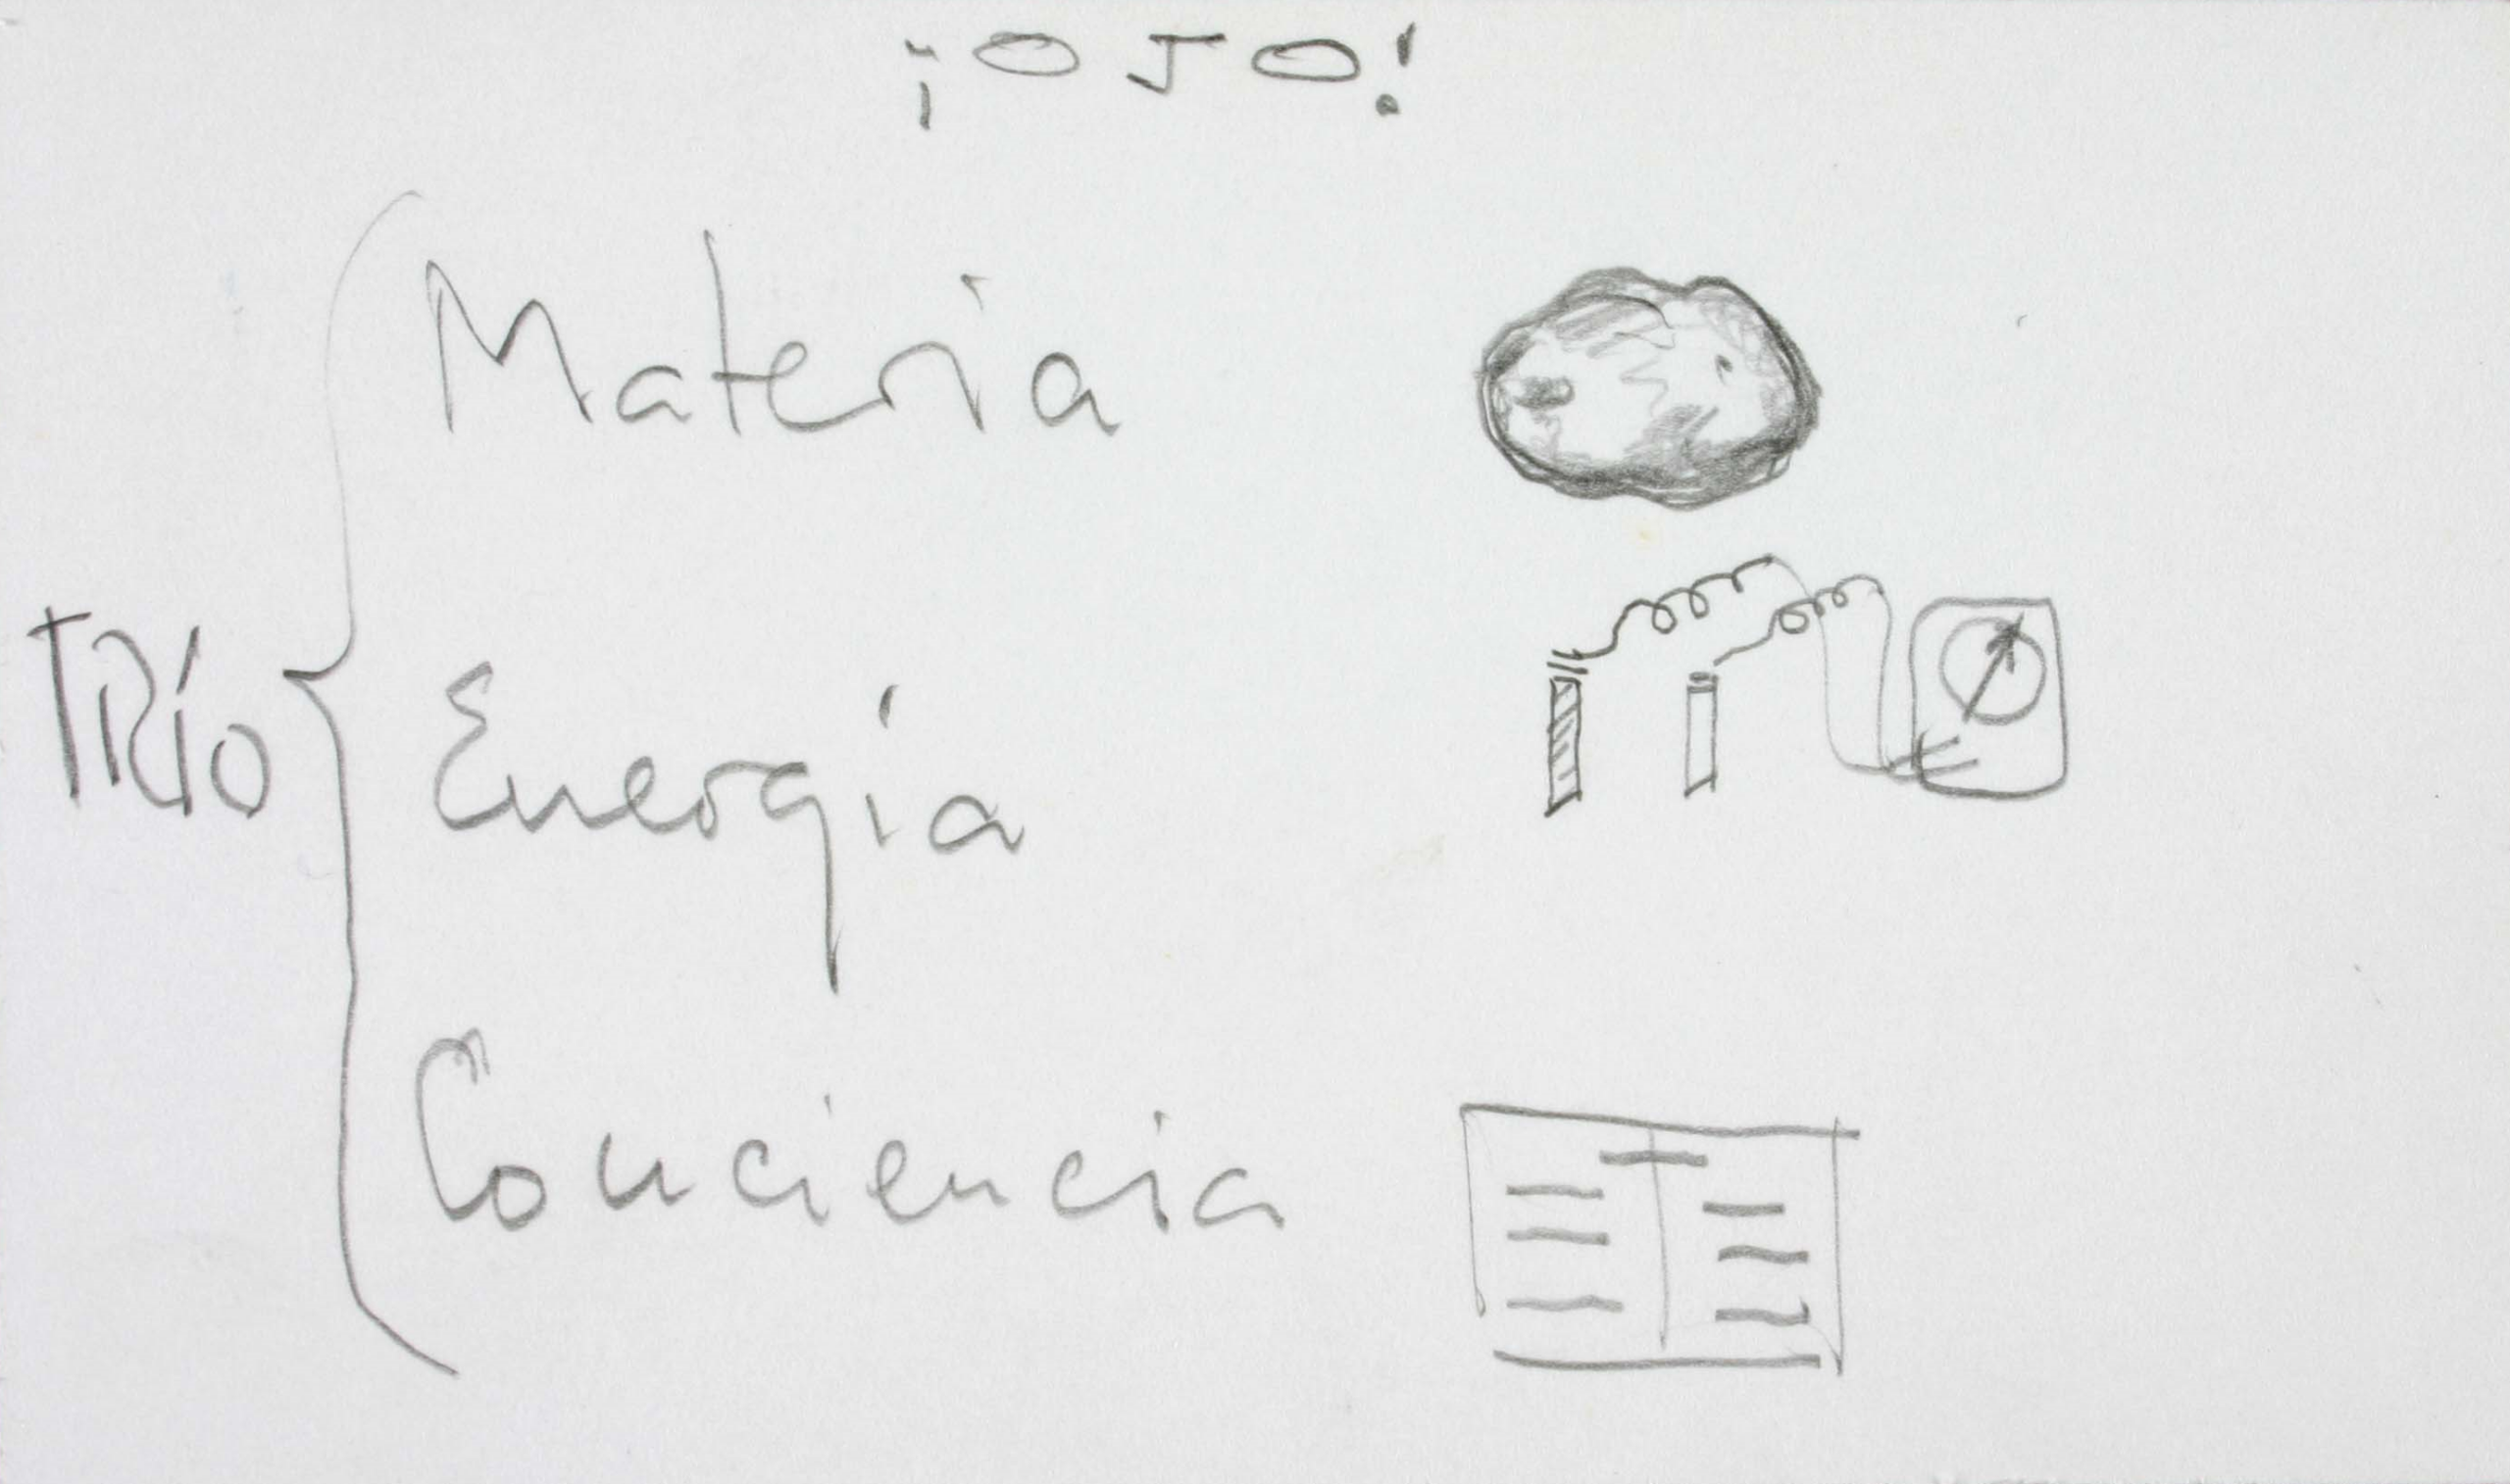 ¡OJO!
Materia
TRÍO
Energía
Conciencia